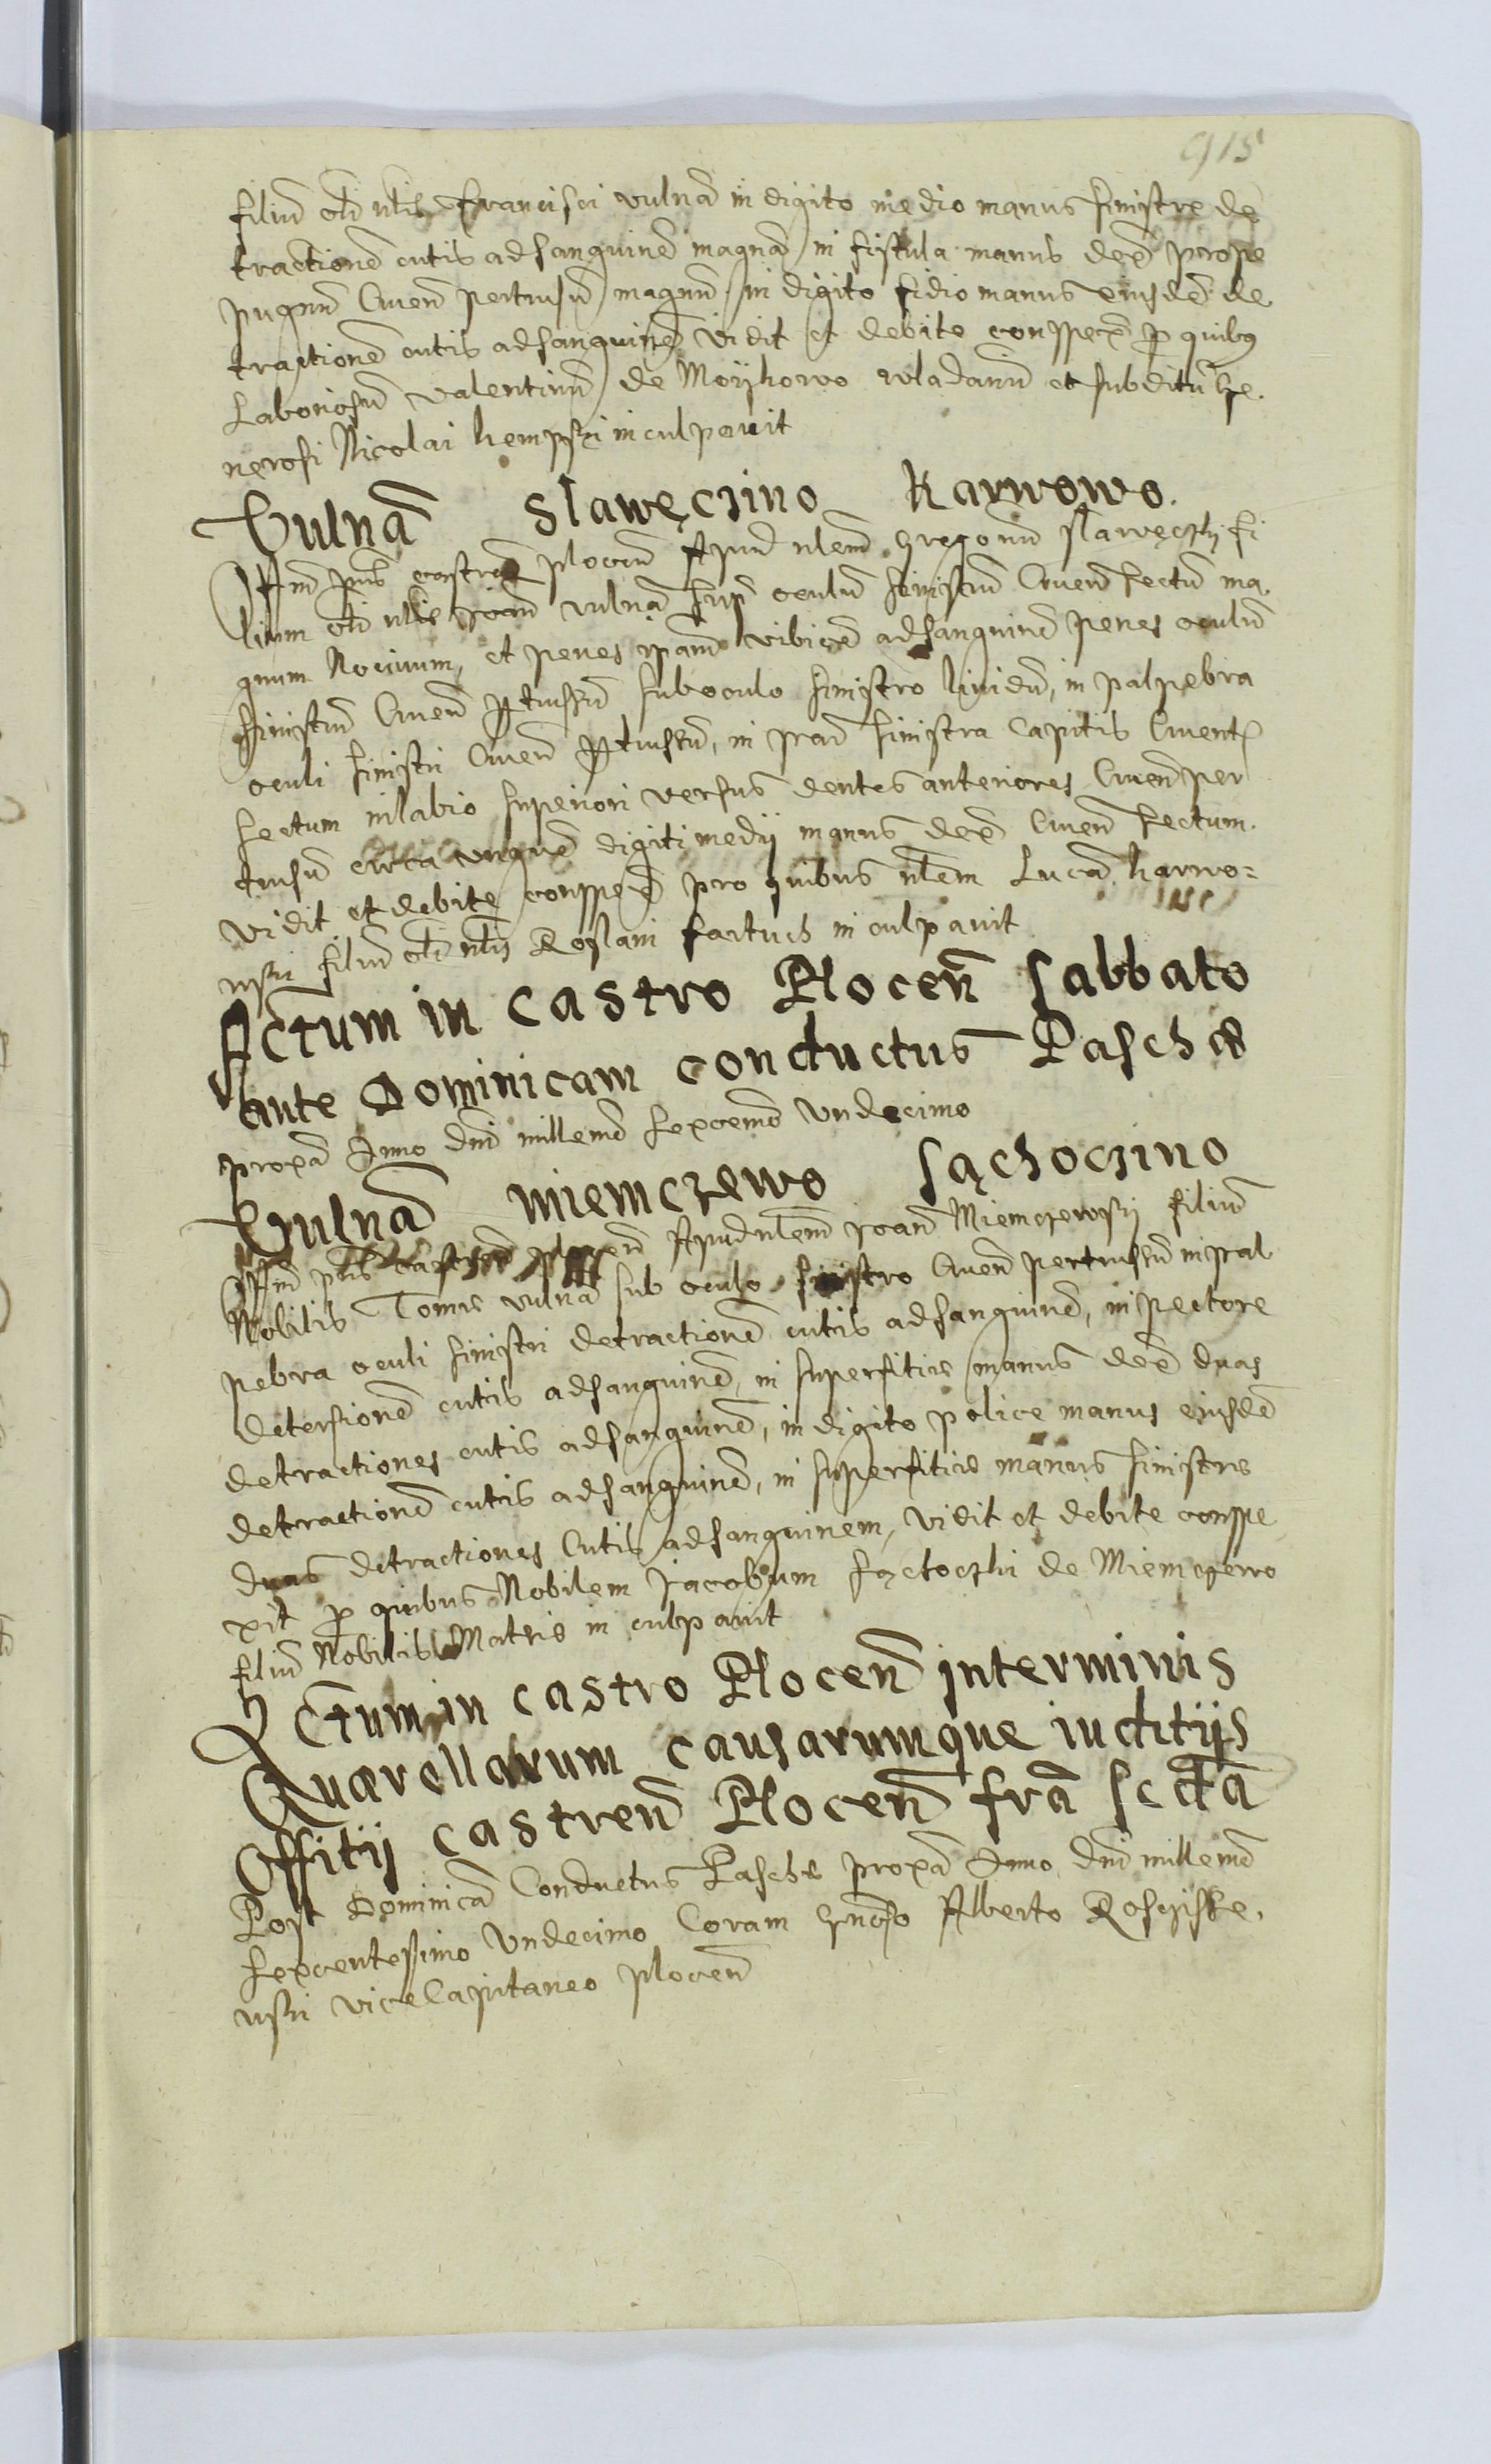 915
filiū olī nlis Francisci vulnā in digito medio manus sinistre de
tractionē cutis ad sanguinē magnā, in fistula manus dexē prope
pugnū Cruen̄ pertusū magnū, in digito medio manus eiusdē de
tractionē cutis ad sanguinē vidit et debite conspexī p̄ quibus
Laboriosū Valentinū de Moÿkowo wladariū et subditū Ge.
nerosi Nicolai kempski inculpauit
Vulnā Slawęczino Karwowo.
Offm̄ pn̄s castren̄ plocen̄ Apud nlem̄ Gregoriū Slawęczki fi
lium olī nlis Joan̄ vulnā supr̄ oculū sinistrū Cruen̄ sectū ma,
gnum Nociuum, et penes ipam̄ vibicē ad sanguinē penes oculū
sinistrū Cruen̄ p̄tussū sub oculo sinistro liuidū, in palpebra
oculi sinistri Cruen̄ p̄tussū, in par̄ sinistra capitis Cruentū
sectum in labio superiori versus dentes anteriores Cruen̄ per
tusū circa unguē digiti medij manus dexē Cruen̄ sectum.
vidit et debite conspexī pro quibus nlem Lucā karwo=
wski filiū olī nlis Roslani Fartuch inculpauit
Actum in Castro Plocen̄ Sabbato
ante Dominicam conductus Paschæ
proxā Anno dni millemō sexcemō Vndecimo
Vulnā Miemczewo Sąchoczino
Offm̄ pn̄s castren̄ plocen̄ Apud nlem̄ Joan̄ Miemczewskj filiū
Nobilis Tome vulnā sub oculo sinistro Cruen̄ pertussū in pal
pebra oculi sinistri detractionē cutis ad sanguinē, in pectore
detersionē cutis ad sanguinē, in superfitie manus dexē duas
detractiones cutis ad sanguinē, in digito police manus eiusdē
detractionē cutis ad sanguinē, in superfitie manus sinistre
duas detractiones Cutis ad sanguinem, vidit et debite conspe
xit p̄ quibus Nobilem Jacobum de Miemczewo
filiū Nobilis Mathie inculpauit
Actum in Castro Plocen̄ in terminis
Quærellarum causarumque iuditijs
Offitij castren̄ Plocen̄ frā scdā
Post Dominicā Conductus Pasche proxā Anno dni millemō
sexcentesimo Vndecimo Coram Gnoso Alberto Rosciszke,
wski viceCapitaneo plocen̄